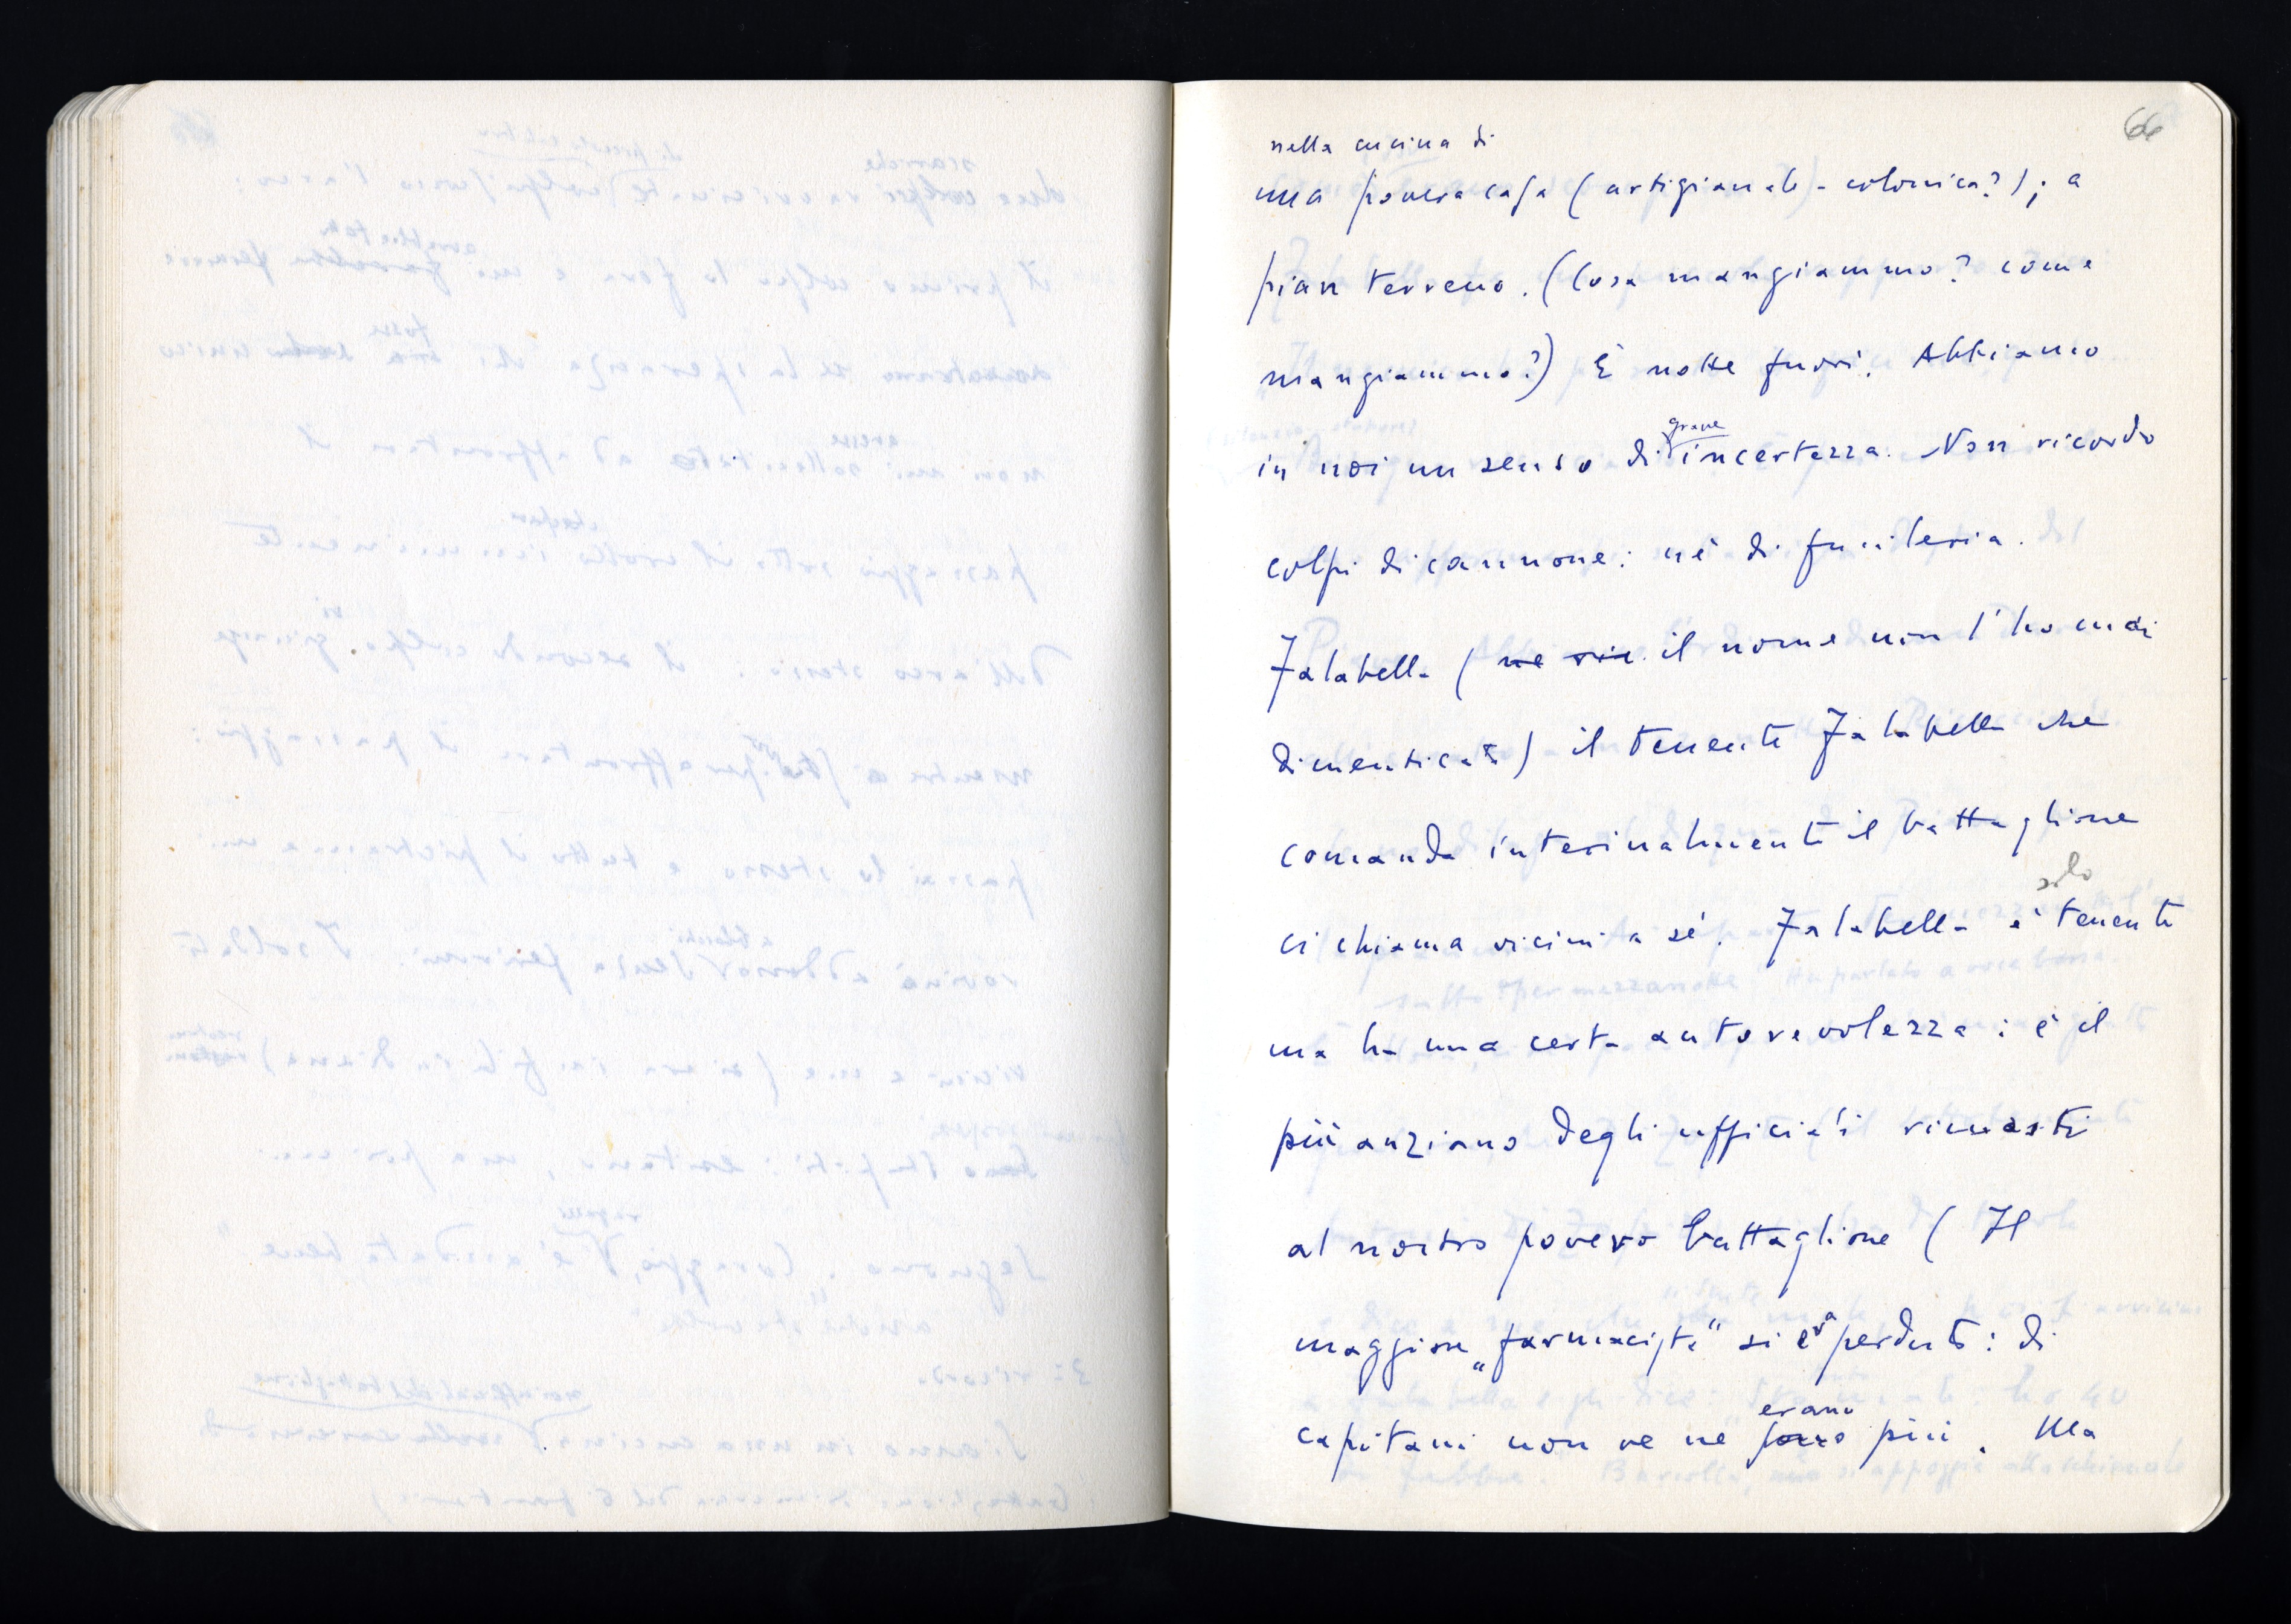 66
nella cucina di
una povera casa (artigianale - colonica?); a
pian terreno. (Cosa mangiammo? come
mangiammo?) È notte fuori. Abbiamo
grave
in noi un senso di incertezza. Non ricordo
colpi di cannone: né di fucileria.
Falabella (ne il nome non l'ho mai
dimenticato) il tenente Falabella che
comanda interinalmente il battaglione
solo
ci chiama vicini a sé. Falabella è tenente
ma ha una certa autorevolezza: è il
più anziano degli ufficiali rimasti
al nostro povero battaglione (Il
maggiore „farmacista" si era perduto: di
erano
capitani non ve ne sono più. Ma